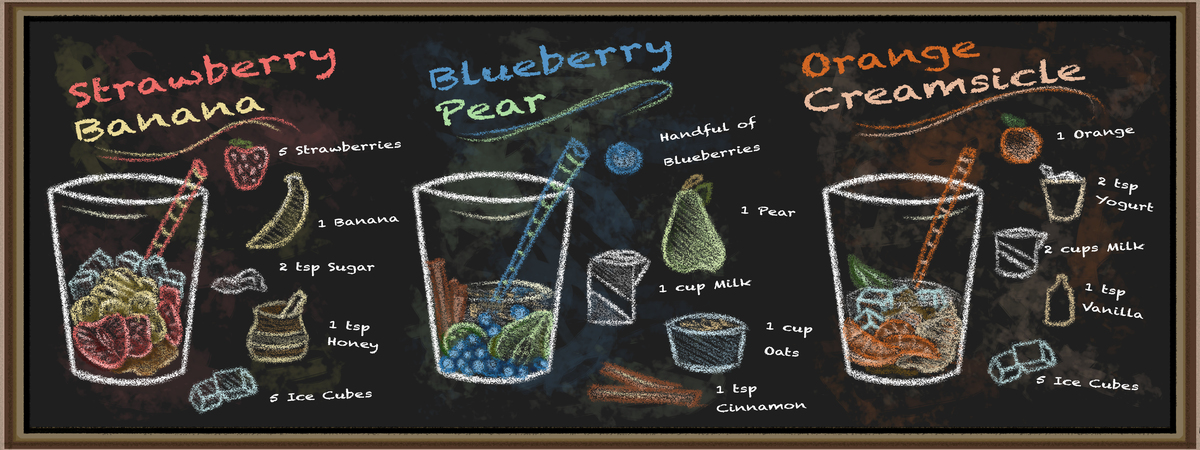 Strawberry
Banana
5 Strawberries
1 Banana
2 tsp Sugar
1 tsp
Honey
5 Ice Cubes
Blueberry
Pear
Handful of
Blueberries
1 Pear
1 cup Milk
1 cup
Oats
1 tsp
Cinnamon
Orange
Creamsicle
1 Orange
2 tsp
Yogurt
2 cups Milk
1 tsp
Vanilla
5 Ice Cubes